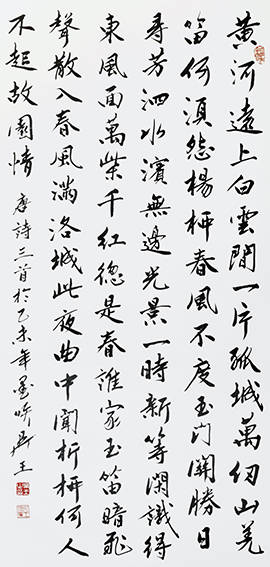 黄河遠上白雲間一片孤城萬仞山羌
笛何須怨楊柳春風不度玉门關勝日
尋芳泗水濱無邊光景一時新等閑識得
東風面萬紫千红總是春誰家玉笛暗飛
聲散入春風滿洛城此夜曲中聞折柳何人
不起故園情 唐詩三首於乙未年墨吟王